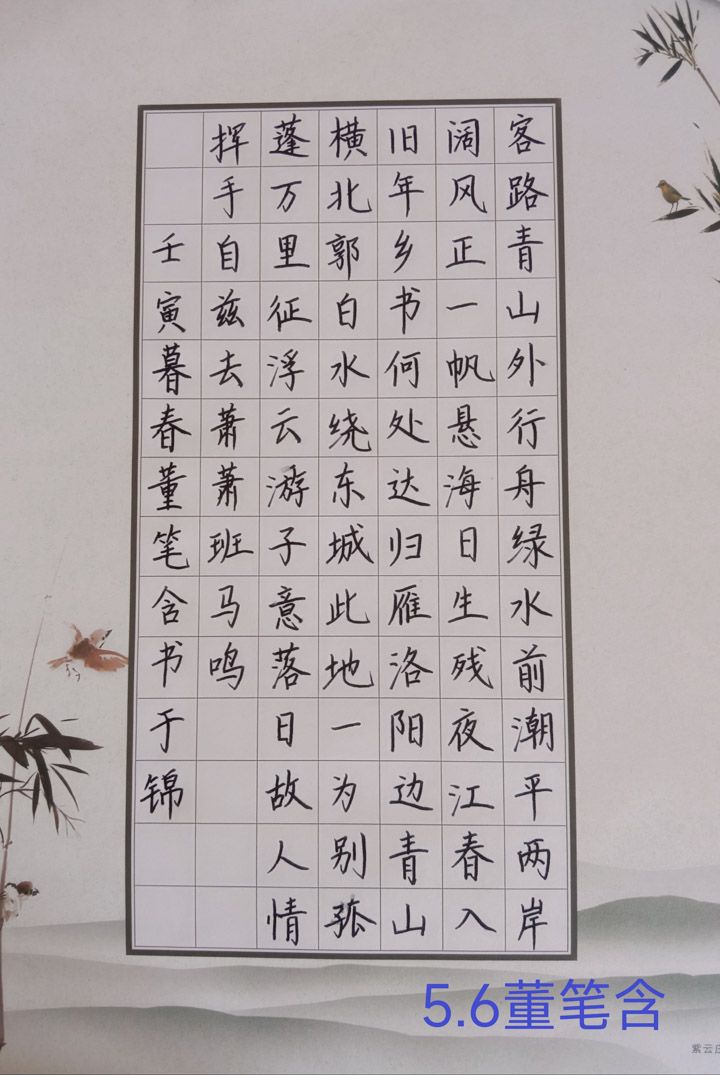 客路青山外行舟绿水前潮平两岸
阔风正一帆悬海日生残夜江春入
旧年乡书何处达归雁洛阳边青山
横北郭白水绕东城此地一为别孤
蓬万里征浮云游子意落日故人情
挥手自兹去萧萧班马鸣
壬寅暮春董笔含书于锦
5.6董笔含